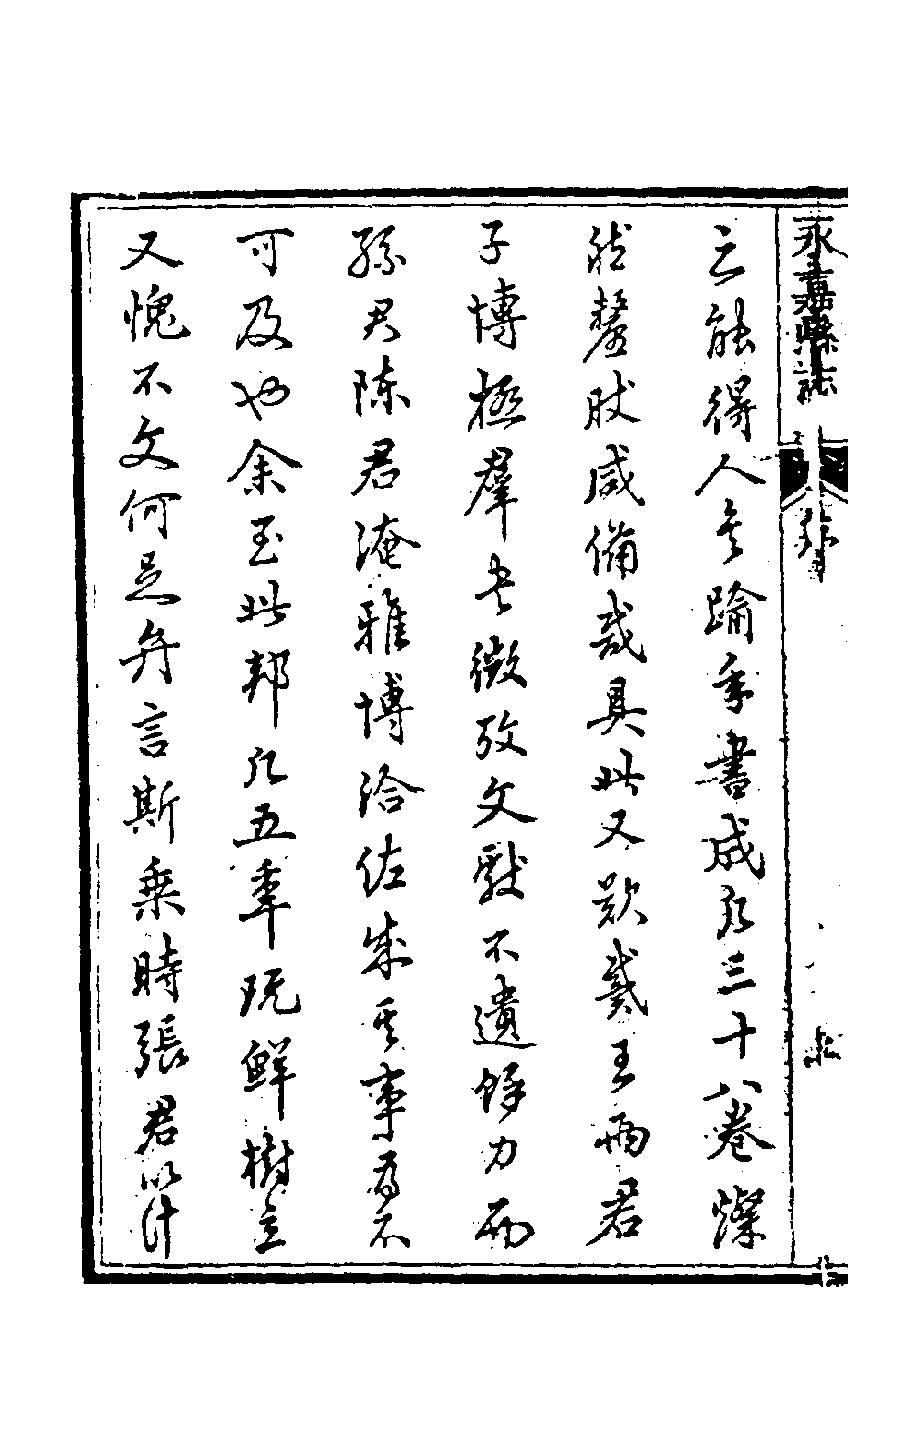 永嘉縣志
之能得人矣踰年書成凡三十八卷燦
然釐然咸備哉具此又歎戴王兩君
子博極羣書徵攷文獻不遺餘力而
孫君陳君淹雅博洽佐成其事為不
可及也余至此邦凡五年既鮮樹立
又愧不文何足弁言斯乘時張君以計